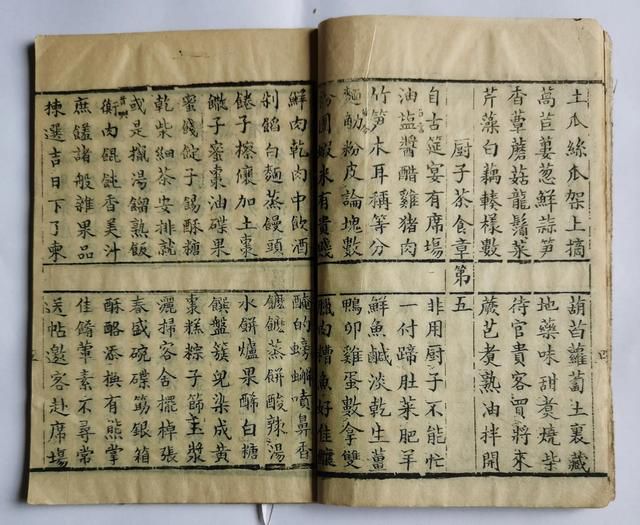 土瓜絲瓜架上摘 葫苩蘿蔔土裏藏
萵苣蔞葱鮮蒜笋 地藥味甜煮燒柴
香蕈蘑菇龍鬚菜 待官貴客買將來
芹藻白藕轃樣數 蕨艺煮熟油拌開
厨子茶食章 第五
自古筵宴有席塲 非用厨子不能忙
油盐醬醋雞猪肉 一付蹄肚菜肥羊
竹笋木耳稱等分 鮮魚鹹淡乾生薑
麵觔粉皮論塊數 鴨卵雞蛋數拿雙
粉團蝦米有貴賤 臘肉糟魚好佳釀
鮮肉乾肉中飲酒 醃的螃蠏噴鼻香
剁餡白麵蒸饅頭 蒸餅酸辣湯
子擦儴加土棗 水餅爐果酥白糖
子蜜棗油碟果 饌盤簇兒染成黄
蜜餞錠子錫酥糖 棗糕粽子篩玉漿
乾柴細茶安排就 灑掃客舍擺棹張
或是湯餾熟飯 春盛碗碟筯銀箱
衝肉餛飩香美汁 酥酪添換有熊掌
庶饈諸般雜果品 佳餚葷素不尋常
揀選吉日下了柬 帖邀客赴席塲